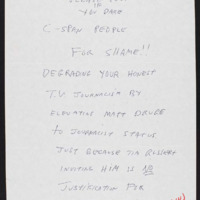 C-SPAN PEOPLE
FOR SHAME!!
DEGRADING YOUR HONEST
T.V. JOURNALISM BY
ELEVATING MATT DRUDGE
TO JOURNALIST STATUS
JUST BECAUSE TIM RUSSERT
INVITED HIM IS NO
JUSTIFICATION FOR